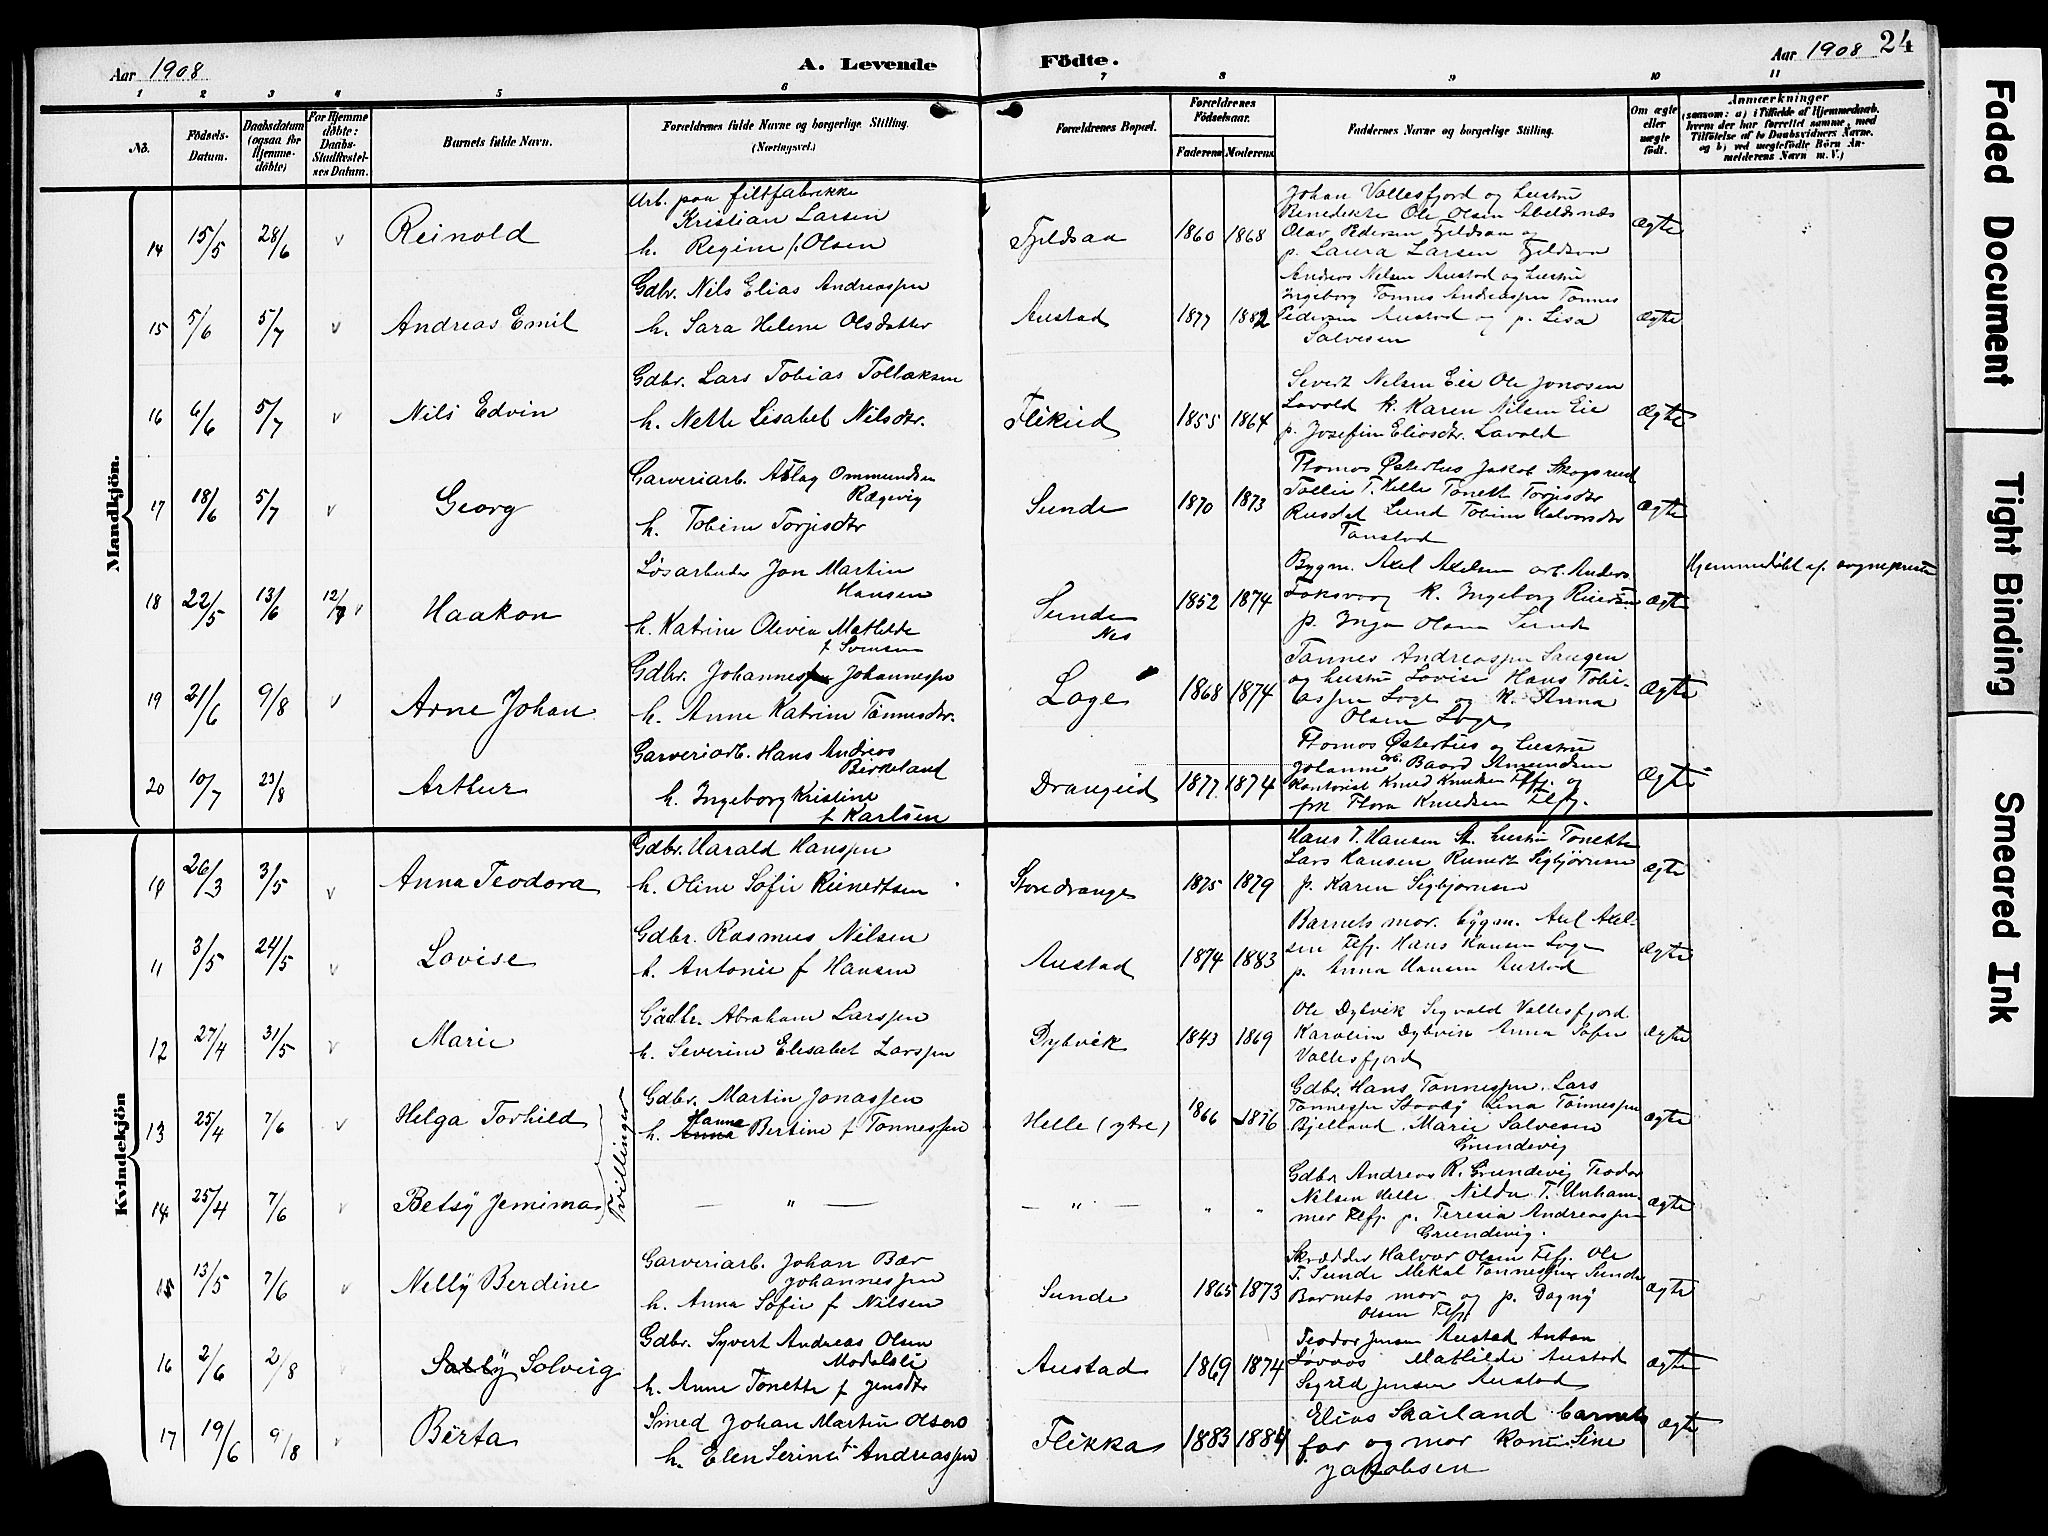 Aar 1908
A. Levende
Födte.
Aar 1908
24
1 2 3 4 5 6 7 8 9 10 11
No.
Födsels-Datum.
Daabsdatum (ogsaa for Hjemme-döbte)
For Hjemme döbte: Daabs-Stadfæstel-ses Datum.
Barnets fulde Navn.
Forældrenes fulde Navne og borgerlige Stilling.
(Næringsvei.)
Forældrenes Bopæl.
Forældrenes Födselsaar.
Faderens Moderens
Faddernes Navne og borgerlige Stilling.
Om ægte eller uægte födt.
Anmærkninger
(saasom: a) i Tilfælde af Hjemmedaab.
hvem der har forrettet samme, med
Tilföielse af to Daabsvidners Navne.
og b) ved uægtefödte Börn An-
melderens Navn m. V.)
Mandkjön.
14 15/5 28/6 v Reinold
Arb. paa filtfabrikke
Kristian Larsen
h. Regine f. Olsen
Fjeldsaa 1860 1868
Johan Vollesfjord og hustru
Benedikte Ole Olsen Abelsnæs
Olav Pedersen Fjeldsaa og
p. Laura Larsen Fjeldsaa
Ægte
15 5/6 5/7 v Andreas Emil
Gdbr. Nils Elias Andreassen
h. Sara Helene Olsdatter
Austad 1877 1882
Andreas Nilsen Austad og hustru
Ingeborg Tønnes Andreassen Tønnes
Pedersen Austad og p. Lisa
Salvesen
Ægte
16 6/6 5/7 v Nils Edvin
Gdbr. Lars Tobias Tollaksen
h. Nelle Lisabet Nilsdtr.
Flikeid 1855 1864
Severt Nilsen Eie Ole Jonasen
Lavold k. Karen Nilsen Eie
p. Josefine Eliasdtr. Lavold
Ægte
17 18/6 5/7 v Georg
Garveriarb. Aslag Ommundsen
Rægevig
h. Tobine Torjisdtr
Sunde 1870 1873
Thomas Østerhus Jakob Skogsrud
Tollir T. Helle Tonette Torjisdtr
Rusdal Lund Tobine Halvorsdtr
Tanstad
Ægte
18 22/5 13/6 12/7 v Haakon
Løsarbeider Jon Martin
Hansen
h. Katrine Olevia Mathilde
f Svensen
Sunde
Nes
1852 1874
Bygm. Axel Axelsen arb. Anders
k. Ingeborg
p. Inga Olsen Sunde
Ægte
Hjemmedøbt af sognepresten
19 21/6 9/8 v Arne Johan
Gdbr. Johannes Johannessen
h. Anne Katrine Tønnesdtr.
Loge 1868 1874
Tønnes Andreassen Saugen
og hustru Lovise Hans Tobi-
assen Loge og k. Anna
Olsen Loge
Ægte
20 10/7 23/8 Arthur
Garveriarb. Hans Andreas
Birkeland
h. Ingeborg Kristine
f Karlsen
Drangeid 1877 1874
Thomas Østerhus og hustru
Johanne arb. Baard Amundsen
kontorist Knud Knudsen Flfj. og
frk Flora Knudsen Flfj.
Ægte
Kvindekjön
10 26/3 3/5 v Anna Teodora
Gdbr. Harald Hanssen
h. Oline Sofie Reinertsen
Storedrange 1875 1879
Hans T. Hansen St. hustru Tonette
Lars Hansen Reinert Sigbjørnsen
p. Karen Sigbjørnsen
Ægte
11 3/5 24/5 v Lovise
Gdbr. Rasmus Nilsen
h. Antonie f Hansen
Austad 1874 1883
Barnets mor. bygm. Axel Axel-
sen Flfj. Hans Hansen Loge
p. Anna Hansen Austad
Ægte
12 27/4 31/5 v Marie
Gdbr. Abraham Larssen
h. Severine Elisabet Larssen
Dybvik 1843 1869
Ole Dybvik Sigvald Vollesfjord
Karoline Dybvik Anna Sofie
Vollesfjord
Ægte
13 25/4 7/6 v Helga Torhild
Tvillinger
Gdbr. Martin Jonassen
h. Hanne Bertine f Tønnessen
Helle (ytre) 1866 1876
Gdbr. Hans Tønnessen. Lars
Tønnessen Lina Tønnessen
Bjelland Marie Salvesen
Grundevig
Ægte
14 25/4 7/6 v Betsy Jemima
— " — — " — " "
Gdbr Andreas R. Grundevig Teodor
Nilsen Helle Nilda T. Unham-
mer Flfj. p. Teresia Andreassen
Grundevig.
Ægte
15 13/5 7/6 v Nelly Berdine
Garveriarb. Johan Bær
Johannessen
h. Anna Sofie f Nilsen
Sunde 1865 1873
Skrædder Halvor Olsen Flfj. Ole
T. Sunde Mikal Tønnessen Sunde
Barnets mor og p. Dagny
Olsen Flfj.
Ægte
16 2/6 2/8 v Solveig
Gdbr. Syvert Andreas Olsen
Modalsli
h. Anne Tonette f Jensdtr
Austad 1869 1874
Teodor Jensen Austad Anton
Løvaas Mathilde Austad
Sigrid Jensen Austad
Ægte
17 19/6 9/8 v Berta
Smed Johan Martin Olsen
h. Elen Serine f. Andreassen
Flikka 1883 1884
Elias Skailand barnets
far og mor kone Sine
Jakobsen
Ægte
Faded Document
Tight Binding
Smeared Ink